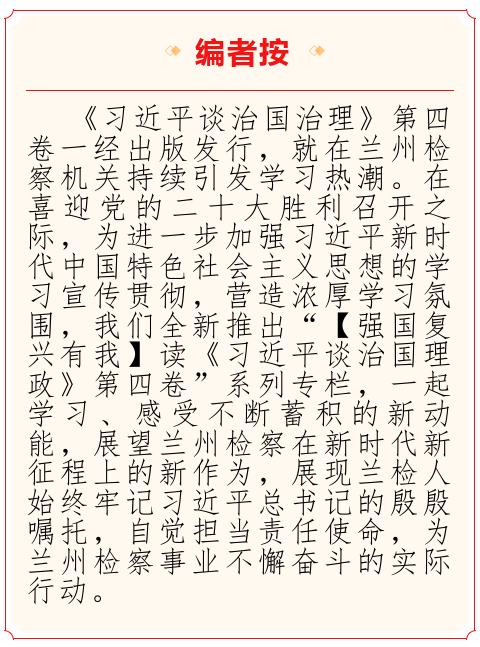 编者按
《习近平谈治国治理》第四
卷一经出版发行，就在兰州检
察机关持续引发学习热潮。在
喜迎党的二十大胜利召开之
际，为进一步加强习近平新时
代中国特色社会主义思想的学
习宣传贯彻，营造浓厚学习氛
围，我们全新推出“【强国复
兴有我】读《习近平谈治国理
政》第四卷”系列专栏，一起
学习、感受不断蓄积的新动
能，展望兰州检察在新时代新
征程上的新作为，展现兰检人
始终牢记习近平总书记的殷殷
嘱托，自觉担当责任使命，为
兰州检察事业不懈奋斗的实际
行动。